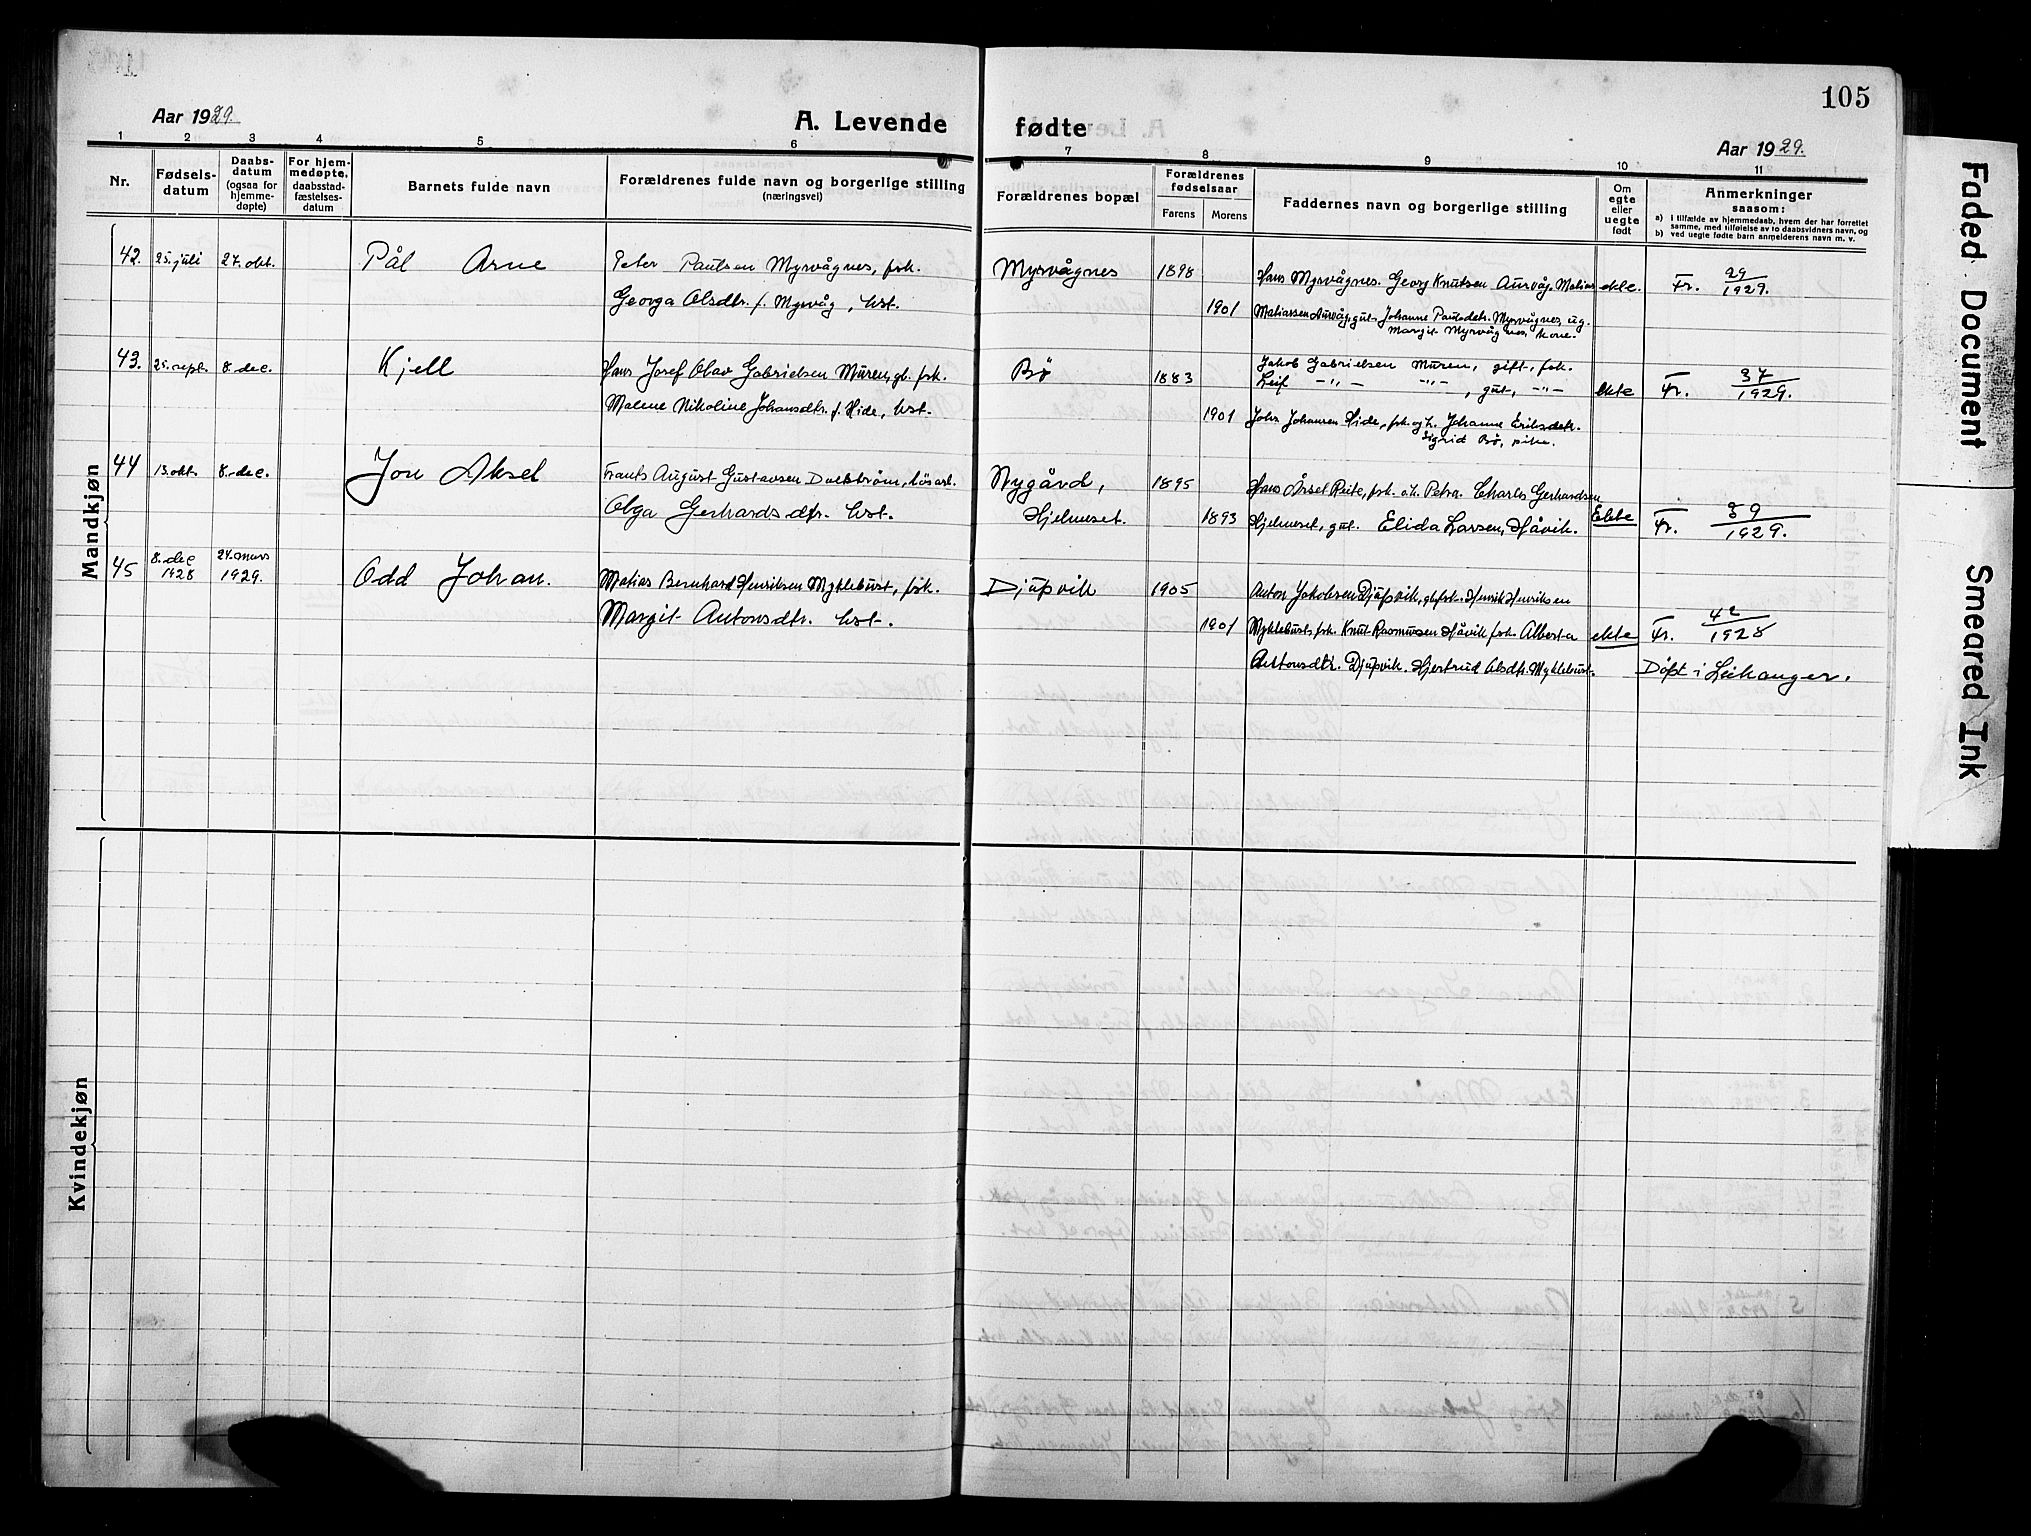 105
Aar 1929.
A. Levende
fødte
Aar 1929.
1 2 3 4 5 6 7 8 9 10 11
Nr.
Fødsels-
datum
Daabs-
datum
(ogsaa for
hjemme-
døpte)
For hjem-
medøpte.
daabsstad-
fæstelses-
datum
Barnets fulde navn
Forældrenes fulde navn og borgerlige stilling
(næringsvei)
Forældrenes bopæl
Forældrenes
fødselsaar
Farens
Morens
Faddernes navn og borgerlige stilling
Om
egte
eller
uegte
født
Anmerkninger
saasom:
a) i tilfælde av hjemmedaab, hvem der har forrettet
samme, med tilføielse av to daabsvidners navn, og
b) ved uegte fødte barn anmelderens navn m. v.
Mandkjøn
42. 25. juli 27. okt. Pål Arne Peter Paulsen Myrvågnes, fsk. Myrvågnes 1898 Hans Myrvågnes. Georg Knutsen Aurvåg. Matias ekte. Fr. 29/1929.
Georga Olsdtr. f. Myrvåg, hst. 1901 Matiassen Aurvåg, gut. Johanne Paulsdtr. Myrvågnes, ug.
Margit Myrvågnes, kone.
43. 25. sept. 8. dec. Kjell Hans Josef Olav Gabrielsen Muren, gb. fsk. Bø 1883 Jakob Gabrielsen Muren, gift, fsk.
Leif -"- -"-, gut, -"- ekte Fr. 37/1929.
Malene Nikoline Johansdtr. f. Hide, hst. 1901 Johs Johansen Hide, fsk. og h. Johanne Eriksdtr.
Sigrid Bø, pike.
44 13. okt. 8. dec. Jon Aksel Frants August Gustavsen Dalstrøm, løsarb. Nygård, 1895 Hans Årsel Reite, fsk. o.h. Petra. Charles Gerhardsen
Olga Gerhardsdtr. hst. Hjelmeset. 1893 Hjelmeset, gut. Elida Larsen, Håvik. Ekte Fr. 39/1929.
45 8. dec 1928 24. mars 1929. Odd Johan. Matias Bernhard Henriksen Myklebust, fsk. Djupvik 1905 Anton Jakobsen Djupvik, gb. fsk. Henrik Henriksen
Margit Antonsdtr. hst. 1901 Myklebust, fsk. Knut Rasmussen Håvik fsk. Alberta ekte Fr. 42/1928
Antonsdtr. Djupvik. Hjertrud Olsdtr. Myklebust. Døpt i Leikanger.
Kvindekjøn
Faded Document
Smeared Ink